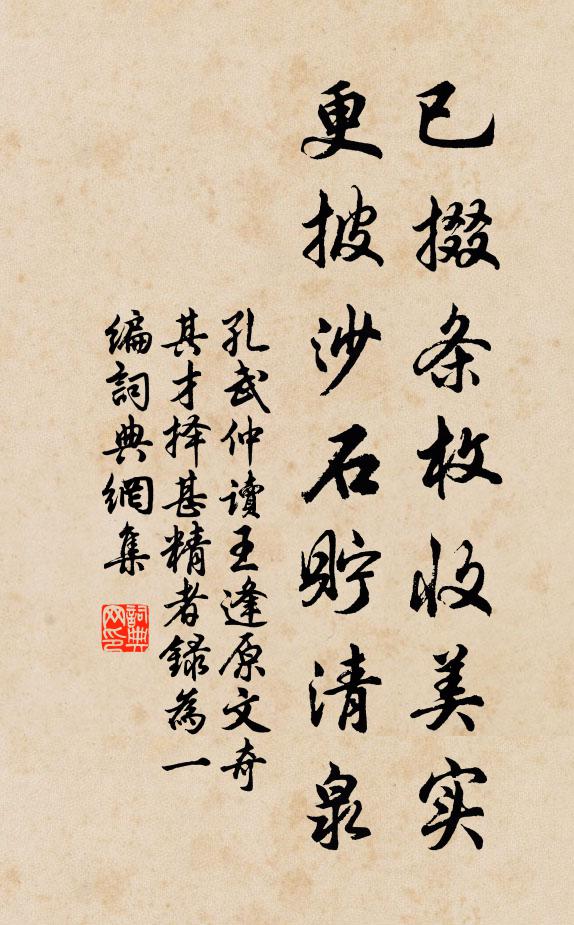 已掇条枚收美实
更披沙石貯清泉
孔武仲讀王逢原文奇
其才择甚精者録為一
編詞典網集
詞典网印